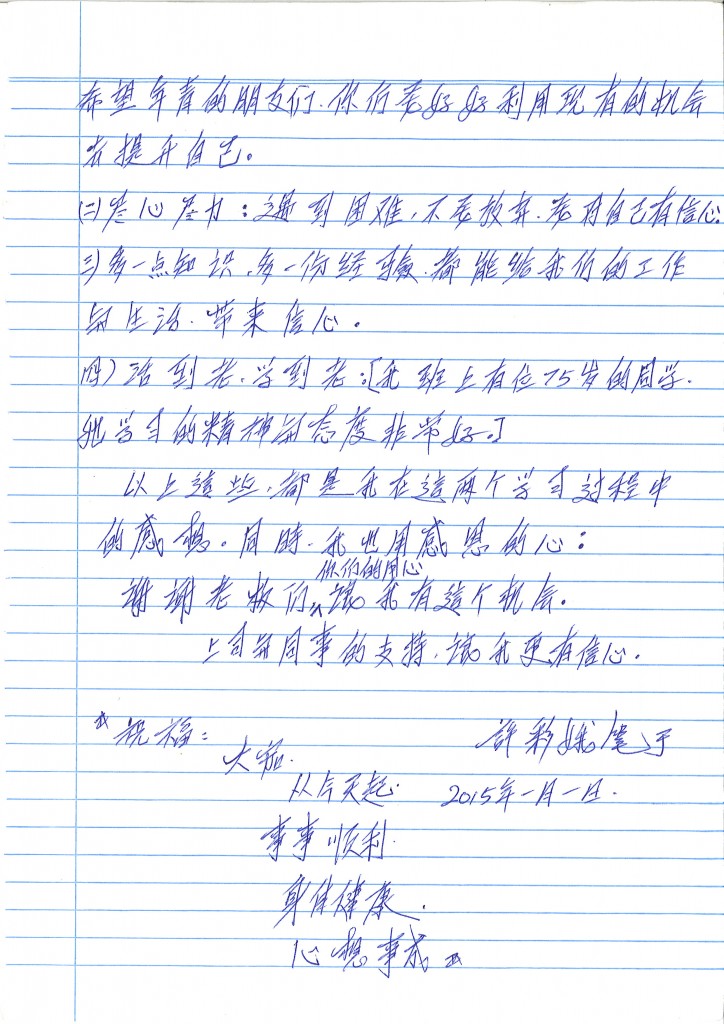 希望年青的朋友们.你们要好好利用现有的机会
去提升自己。
(二)尽心尽力:遇到困难,不要放弃.要对自己有信心.
三)多一点知识.多一份经驗.都能给我们的工作
与生活.带来信心。
四)活到老.学到老:[我班上有位75岁的同学.
她学习的精神与态度非常好。]
以上這些.都是我在這两个学习过程中
的感想。同時.我也用感恩的心:
你们的用心
謝謝老板们^讓我有這个机会。
上司与同事的支持.讓我更有信心.
*祝福:
許彩娥筆于
大茄.
从今天起. 2015年一月一日.
事事顺利.
身体健康.
心想事成。